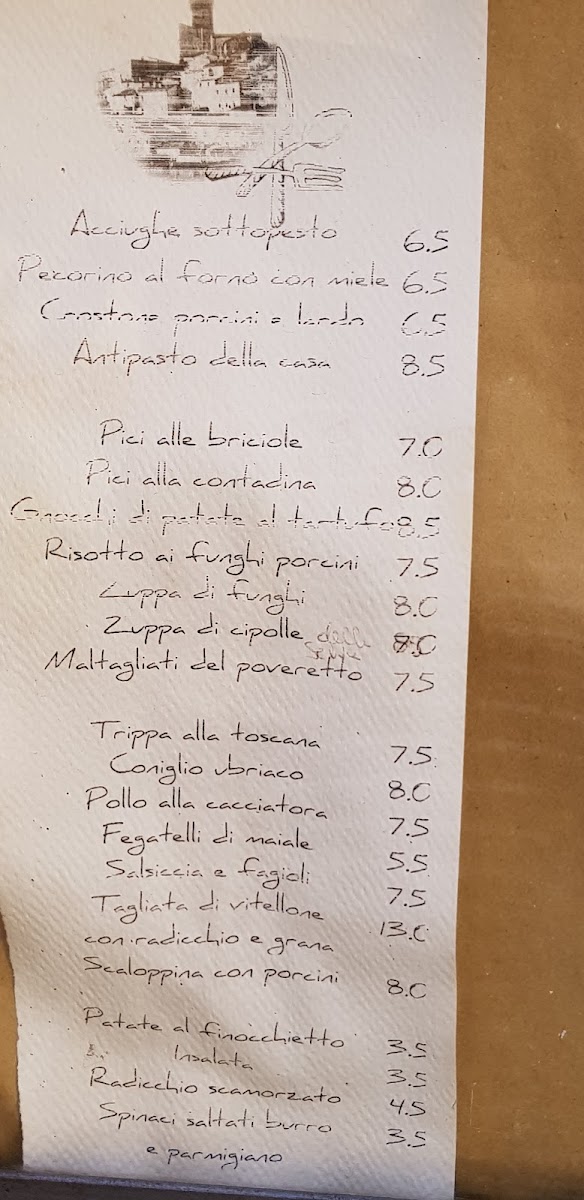 Acciughe sottopesto 6.5
Pecorino al forno con miele 6.5
Crostone porcini e lardo 6.5
Antipasto della casa 8.5
Pici alle briciole 7.0
Pici alla contadina 8.0
Gnocchi di patate al tartufo 8.5
Risotto ai funghi porcini 7.5
Zuppa di funghi 8.0
Zuppa di cipolle 8.0
Maltagliati del poveretto 7.5
Trippa alla toscana 7.5
Coniglio ubriaco 8.0
Pollo alla cacciatora 7.5
Fegatelli di maiale 5.5
Salsiccia e fagioli 7.5
Tagliata di vitellone 13.0
con radicchio e grana
Scaloppina con porcini 8.0
Patate al finocchietto 3.5
Insalata 3.5
Radicchio scamorzato 4.5
Spinaci saltati burro 3.5
e parmigiano